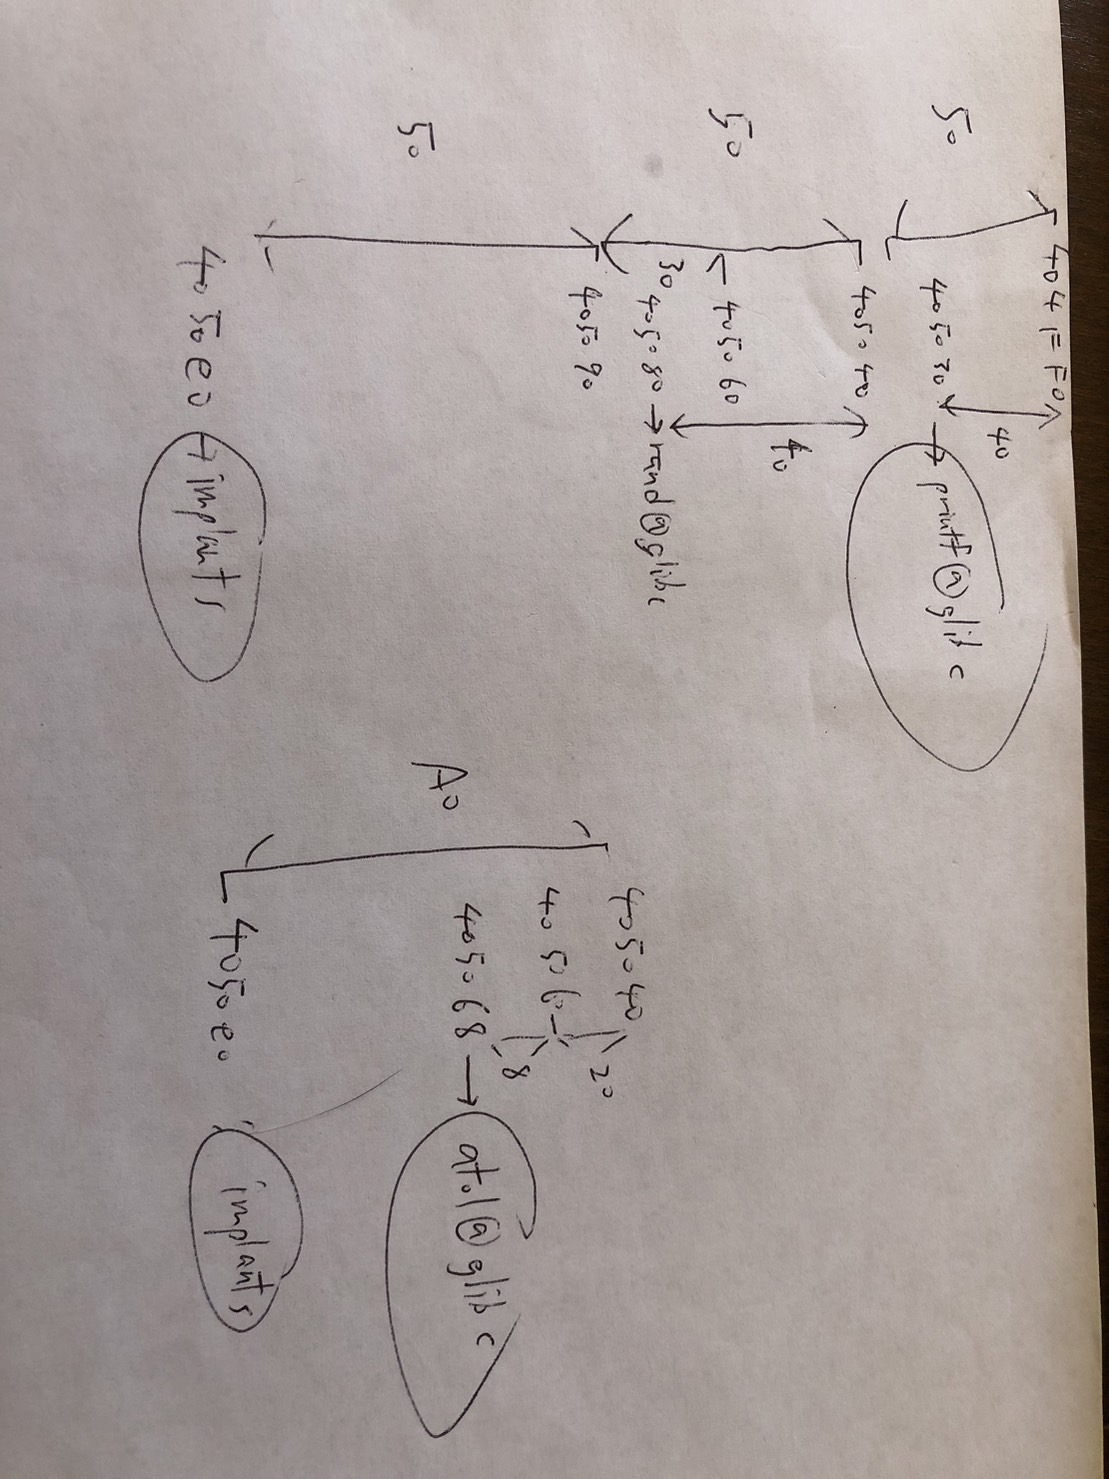 404FF0
40
50
405030 → printf@glibc
405040
40
50
405060
30
405080 → rand@glibc
405090
50
4050e0 → implants
405040
20
405060
8
405068 → atol@glibc
A0
4050e0 implants